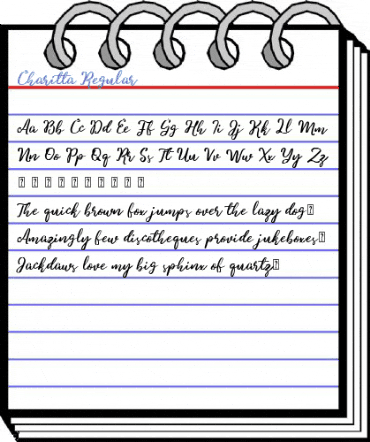 Charitta Regular
Aa Bb Cc Dd Ee Ff Gg Hh Ii Jj Kk Ll Mm
Nn Oo Pp Qq Rr Ss Tt Uu Vv Ww Xx Yy Zz
The quick brown fox jumps over the lazy dog
Amazingly few discotheques provide jukeboxes
Jackdaws love my big sphinx of quartz